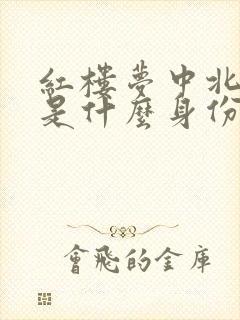 紅樓夢中北
是什麼身份
會飛的金庫